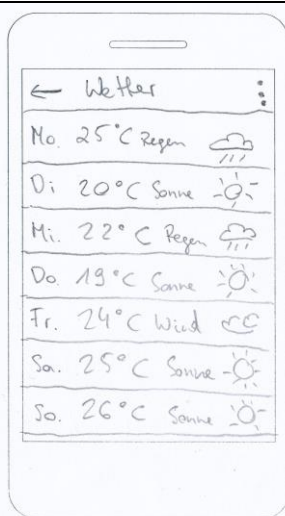 ← Wetter
Mo. 25°C Regen
Di 20°C Sonne
Mi. 22°C Regen
Do. 19°C Sonne
Fr. 24°C Wind
Sa. 25°C Sonne
So. 26°C Sonne